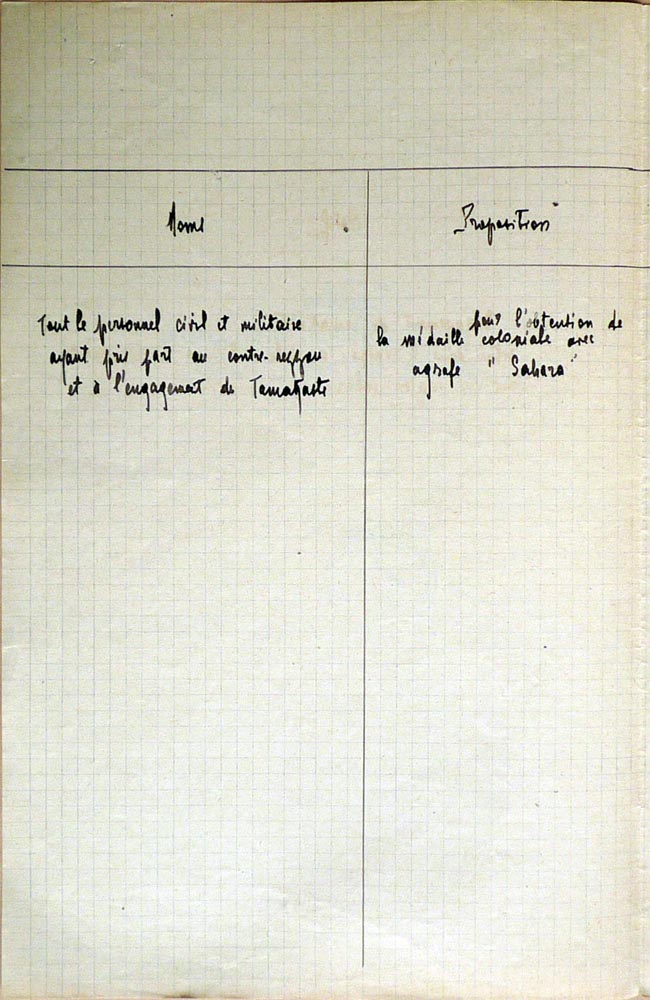 Noms
Proposition
Tout le personnel civil et militaire
ayant pris part au contre-rezzou
et à l'engagement de
pour l'obtention de
la médaille coloniale avec
agrafe "Sahara"